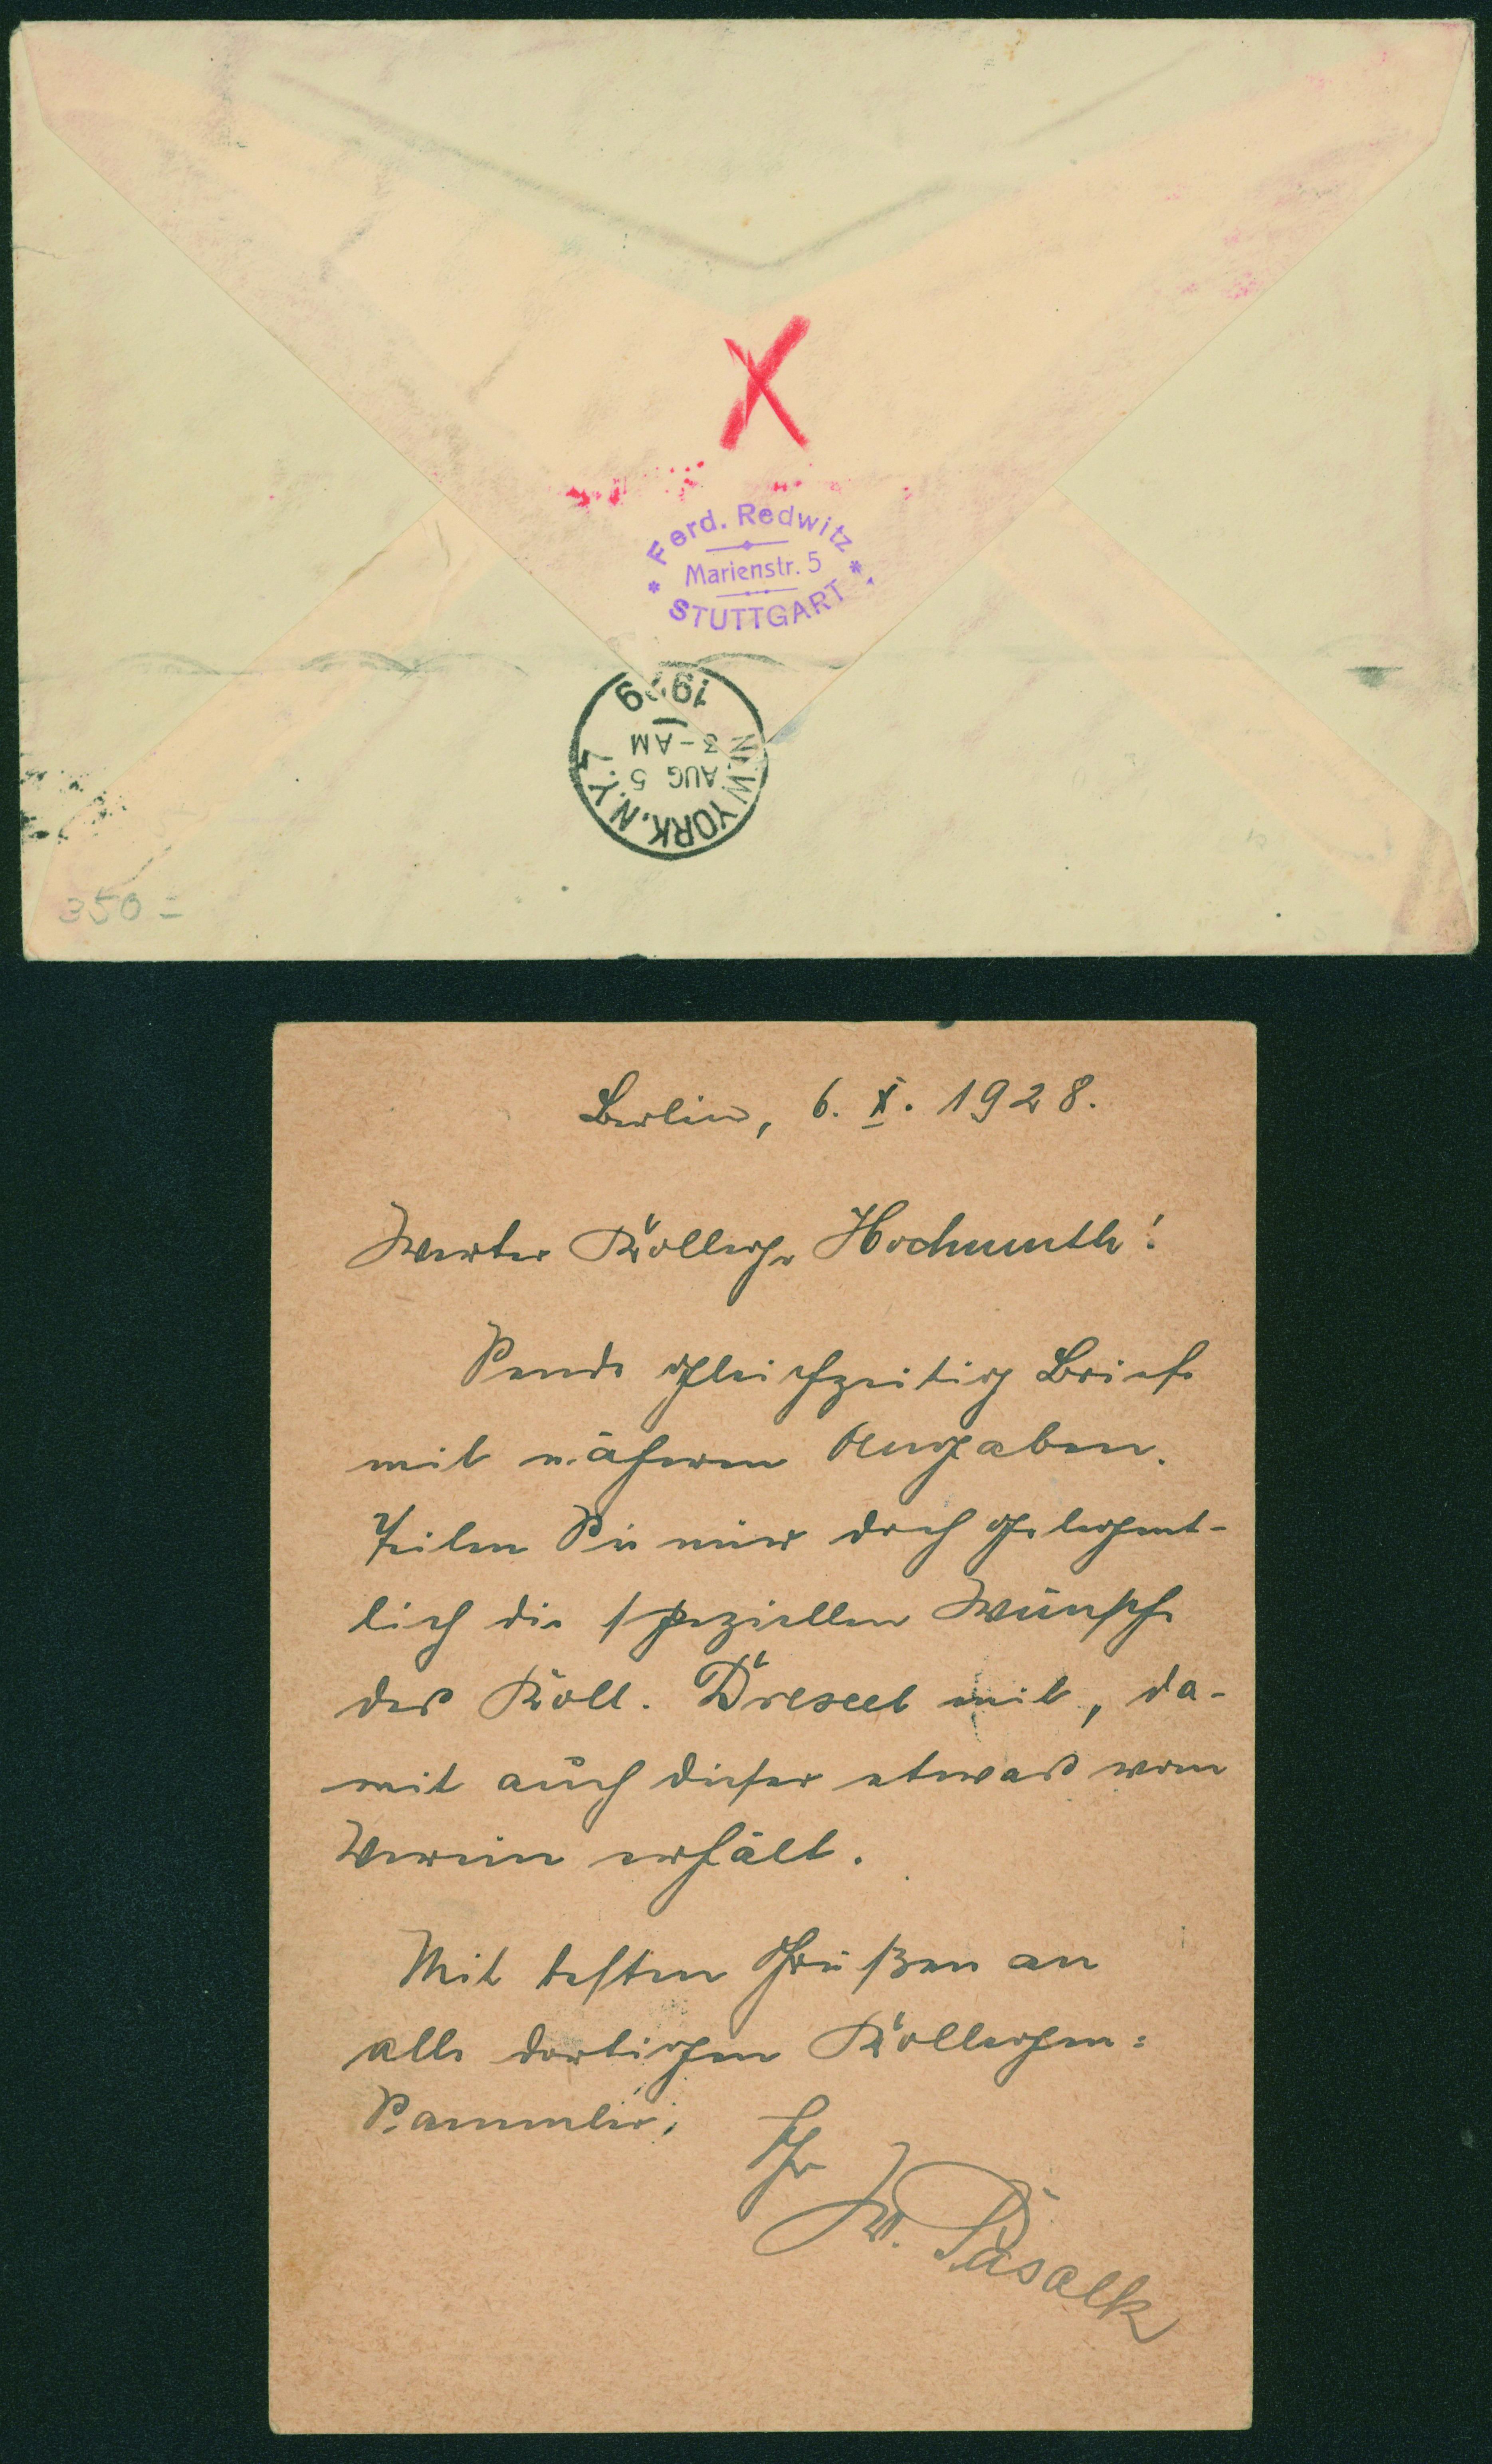 X
Ferd. Redwitz
Marienstr. 5
STUTTGART
1929
3-AM
AUG 5
NEW YORK, N.Y. 7
350=
Berlin, 6. X. 1928.
Werter Kollege Hochmuth!
Sende gleichzeitig Briefe
mit näheren Angaben.
Teilen Sie mir doch gelegent-
lich die speziellen Wünsche
des Koll. Dressel mit, da-
mit auch dieser etwas vom
Verein erhält.
Mit besten Grüßen an
alle dortigen Kollegen=
Sammler,
Ihr
W.